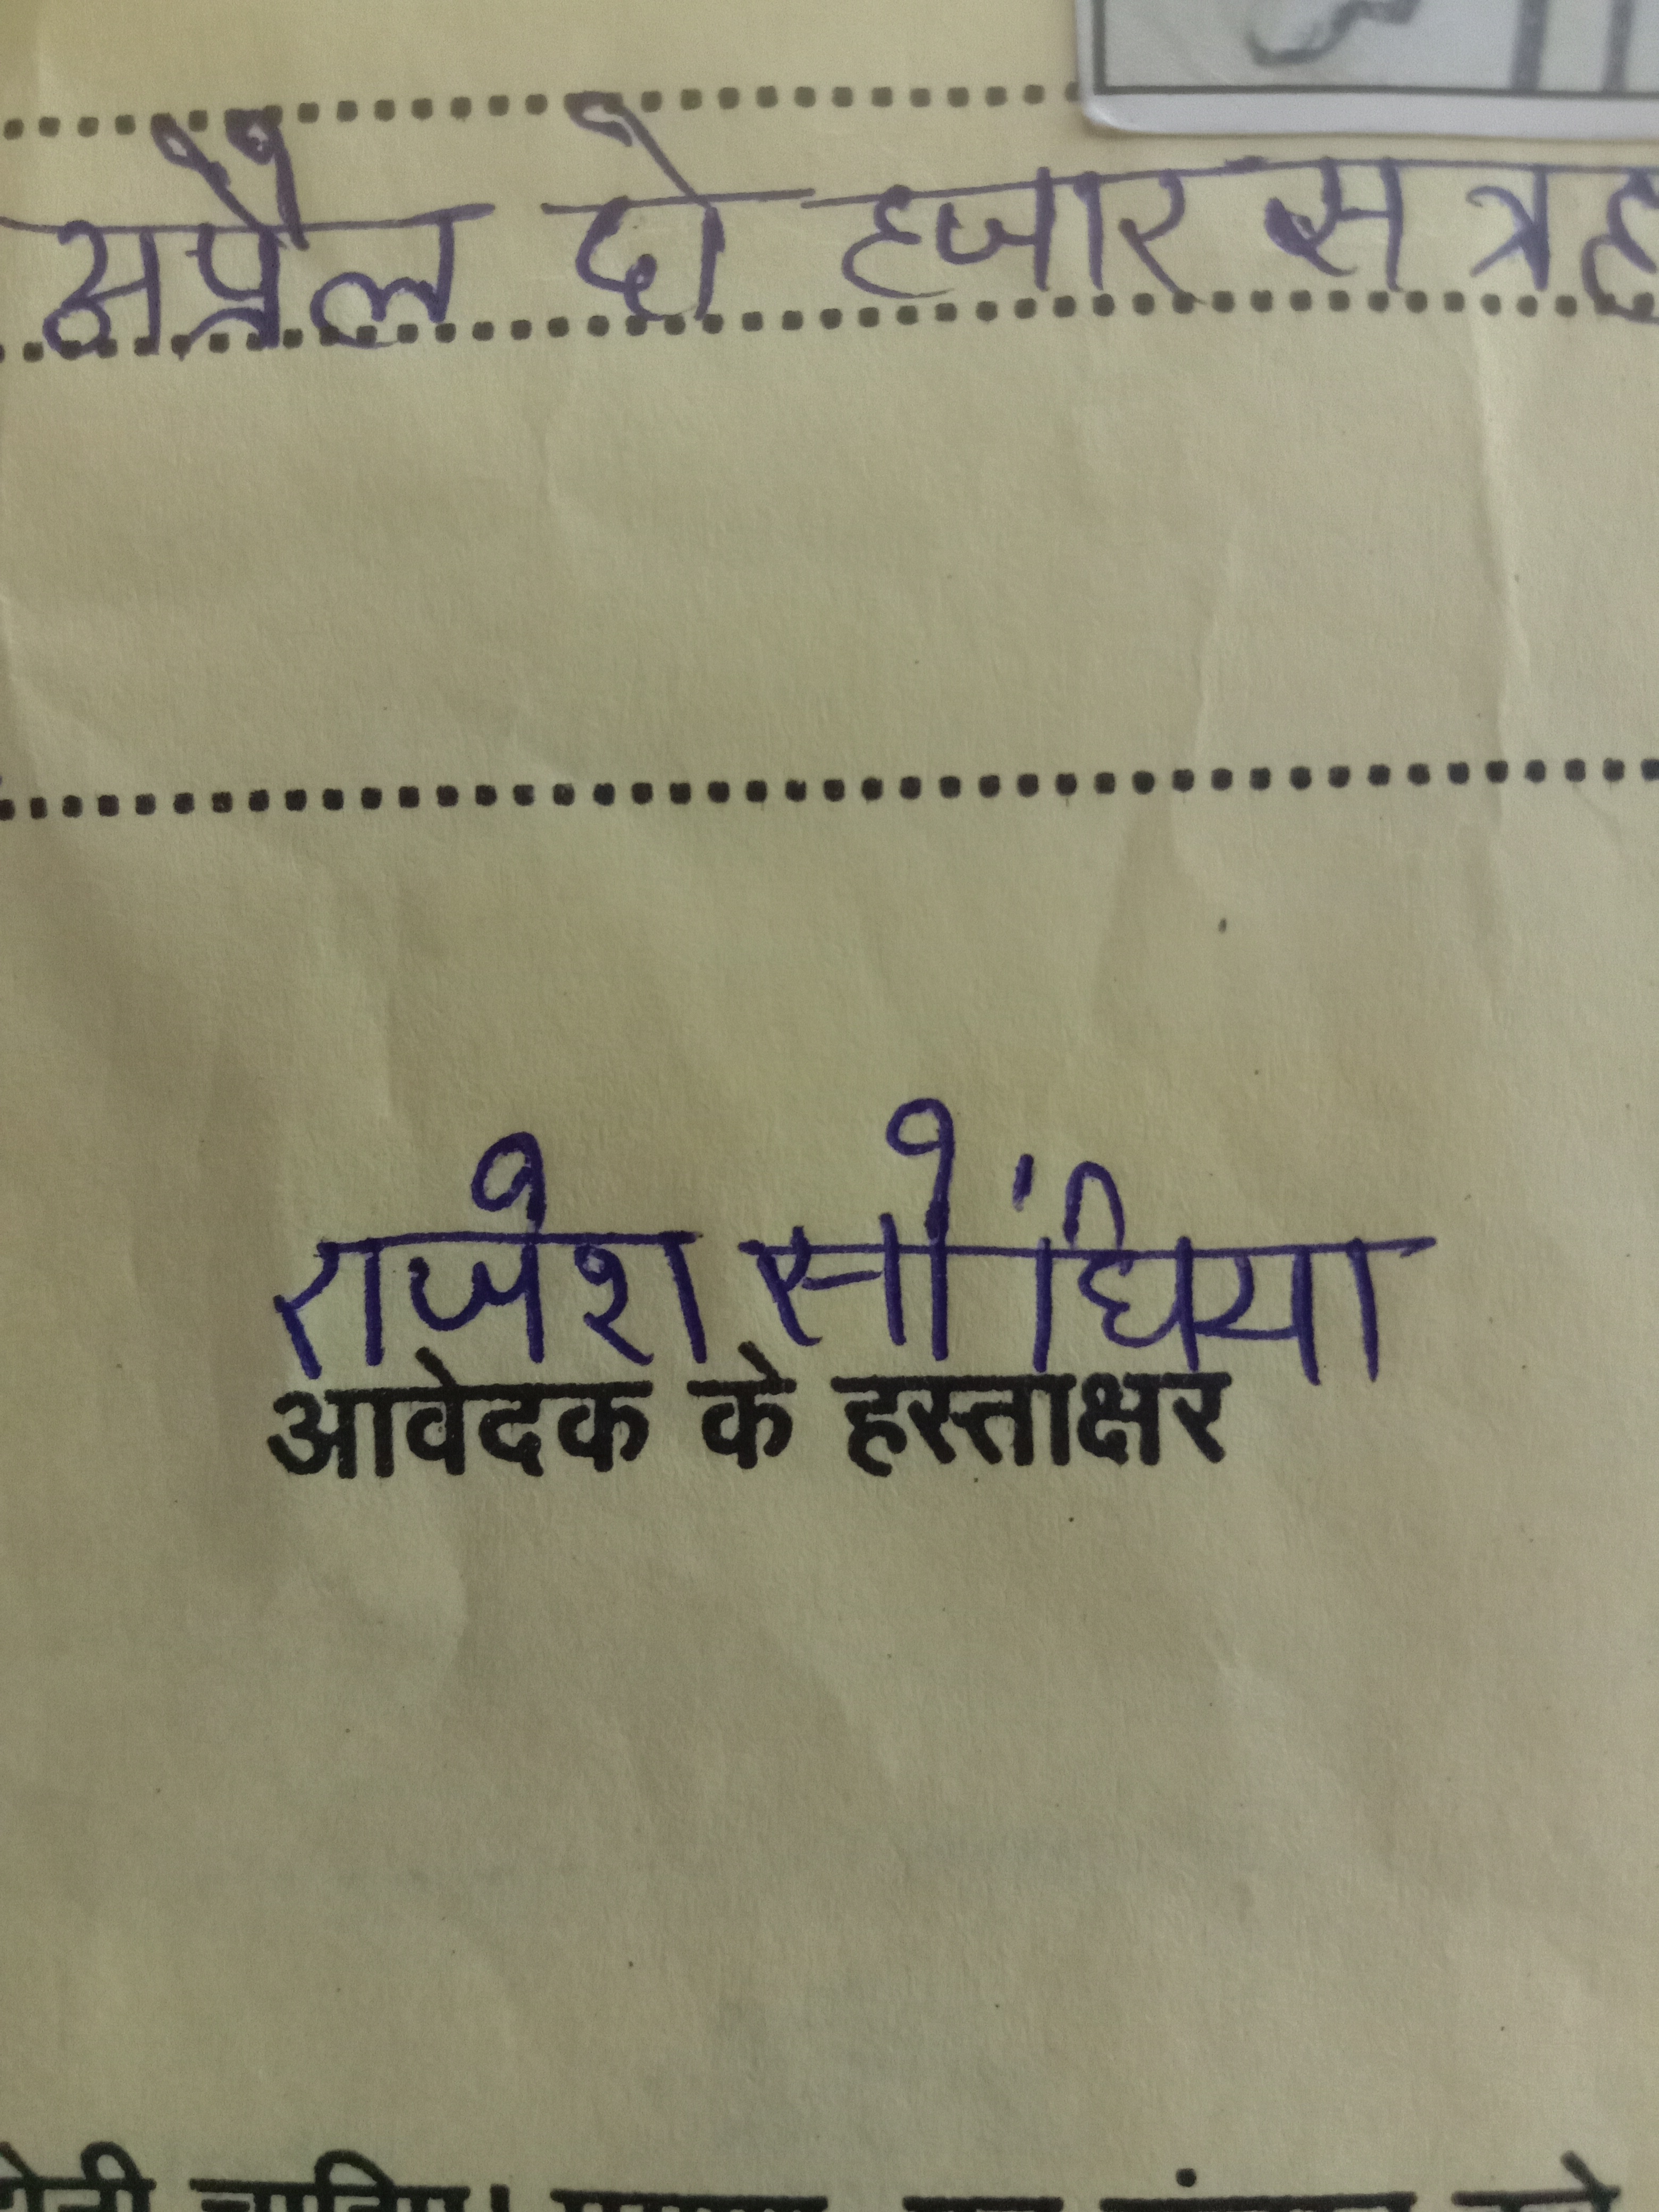 अप्रैल दो हजार सत्रह
राजेश सोंधिया
आवेदक के हस्ताक्षर